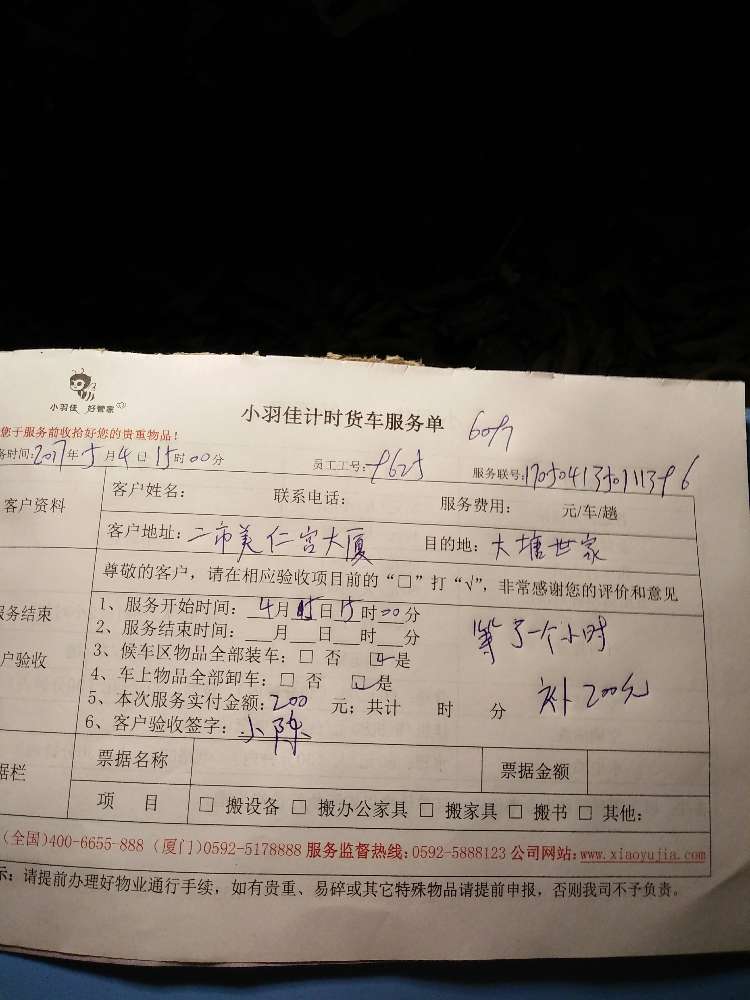 小羽佳 好管家
小羽佳计时货车服务单
您于服务前收拾好您的贵重物品！
务时间:2017年5月4日15时00分 员工工号:9625 服务联号:
客户资料 客户姓名: 联系电话: 服务费用: 元/车/趟
客户地址:二市美仁宫大厦 目的地:大塘世家
尊敬的客户，请在相应验收项目前的“□”打“√”，非常感谢您的评价和意见
服务结束
户验收
1、服务开始时间: 4月 日15时00分
2、服务结束时间:___月___日___时___分
等了一个小时
3、候车区物品全部装车: □ 否 ☑是
4、车上物品全部卸车: □ 否 ☑是
5、本次服务实付金额:200 元; 共计 时 分
补200元
6、客户验收签字: 小陈
据栏 票据名称 票据金额
项 目 □ 搬设备 □ 搬办公家具 □ 搬家具 □ 搬书 □ 其他:
(全国)400-6655-888 (厦门)0592-5178888 服务监督热线:0592-5888123 公司网站:www.xiaoyujia.com
示: 请提前办理好物业通行手续，如有贵重、易碎或其它特殊物品请提前申报，否则我司不予负责。